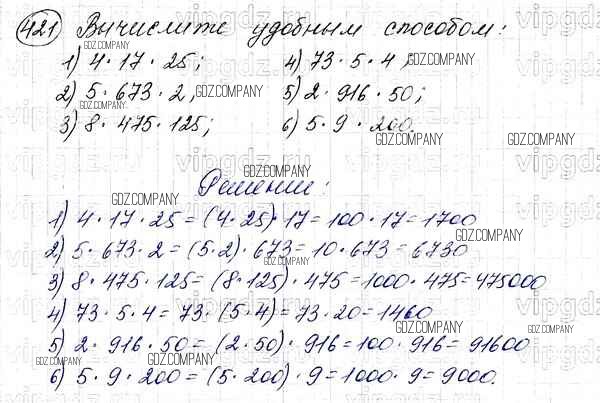 421 Вычислите удобным способом:
1) 4·17·25; 4) 73·5·4;
2) 5·673·2; 5) 2·916·50;
3) 8·475·125; 6) 5·9·200.
Решение:
1) 4·17·25=(4·25)·17=100·17=1700
2) 5·673·2=(5·2)·673=10·673=6730
3) 8·475·125=(8·125)·475=1000·475=475000
4) 73·5·4=73·(5·4)=73·20=1460
5) 2·916·50=(2·50)·916=100·916=91600
6) 5·9·200=(5·200)·9=1000·9=9000.
GDZ.COMPANY
GDZ.COMPANY
GDZ.COMPANY
GDZ.COMPANY
GDZ.COMPANY
GDZ.COMPANY
GDZ.COMPANY
GDZ.COMPANY
GDZ.COMPANY
GDZ.COMPANY
GDZ.COMPANY
GDZ.COMPANY
GDZ.COMPANY
vipgdz.ru